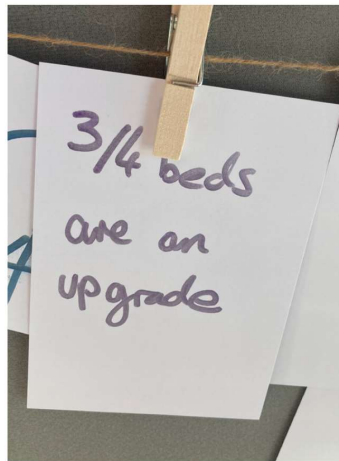 3/4 beds
are an
upgrade